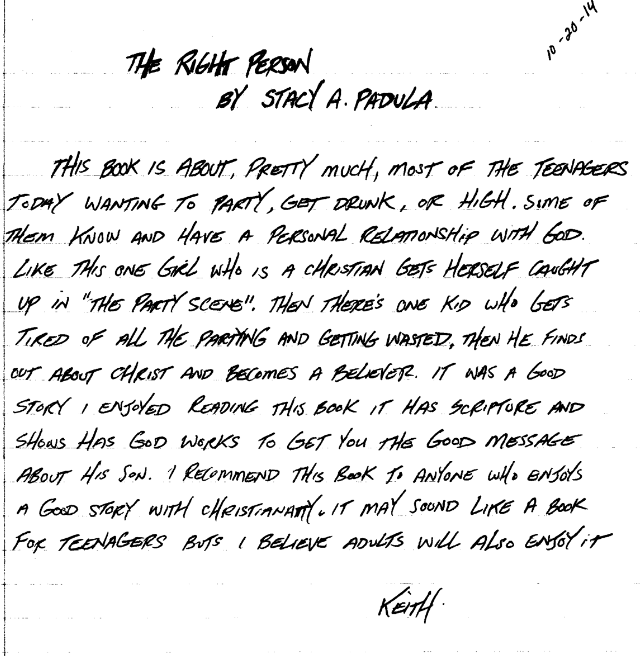 10-20-14
THE RIGHT PERSON
BY STACY A. PADULA
THIS BOOK IS ABOUT, PRETTY MUCH, MOST OF THE TEENAGERS
TODAY WANTING TO PARTY, GET DRUNK, OR HIGH. SOME OF
THEM KNOW AND HAVE A PERSONAL RELATIONSHIP WITH GOD.
LIKE THIS ONE GIRL WHO IS A CHRISTIAN GETS HERSELF CAUGHT
UP IN "THE PARTY SCENE". THEN THERE'S ONE KID WHO GETS
TIRED OF ALL THE PARTYING AND GETTING WASTED, THEN HE FINDS
OUT ABOUT CHRIST AND BECOMES A BELIEVER. IT WAS A GOOD
STORY I ENJOYED READING THIS BOOK IT HAS SCRIPTURE AND
SHOWS HAS GOD WORKS TO GET YOU THE GOOD MESSAGE
ABOUT HIS SON. I RECOMMEND THIS BOOK TO ANYONE WHO ENJOYS
A GOOD STORY WITH CHRISTIANATY. IT MAY SOUND LIKE A BOOK
FOR TEENAGERS BUTS I BELIEVE ADULTS WILL ALSO ENJOY IT
KEITH.